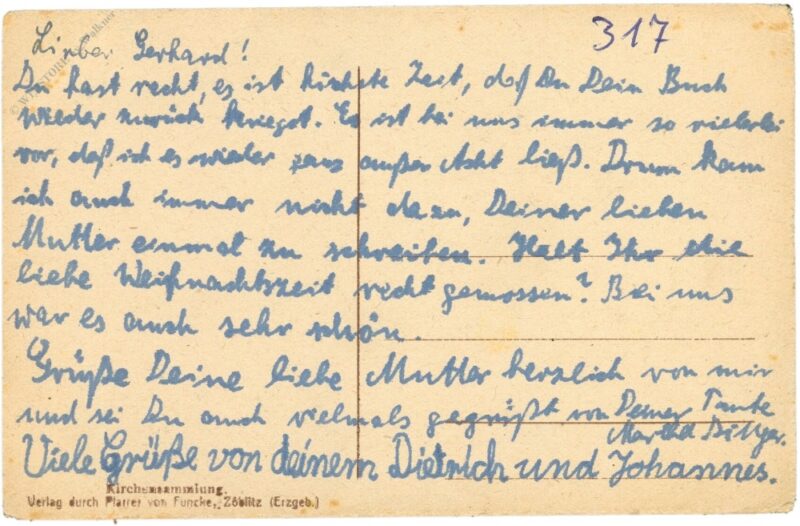 317
Lieber Gerhard!
Du hast recht, es ist höchste Zeit, daß Du Dein Buch
wieder zurück kriegst. Es ist bei uns immer so vielerlei
vor, daß ich es wieder ganz außer Acht ließ. Drum kam
ich auch immer nicht dazu, Deiner lieben
Mutter einmal zu schreiben. Habt Ihr die
liebe Weihnachtszeit recht genossen? Bei uns
war es auch sehr schön.
Grüße Deine liebe Mutter herzlich von mir
und sei Du auch vielmals gegrüßt von Deiner Tante
Martha
Viele Grüße von deinem Dietrich und Johannes.
Kirchensammlung.
Verlag durch Pfarrer von Funcke, Zöblitz (Erzgeb.)